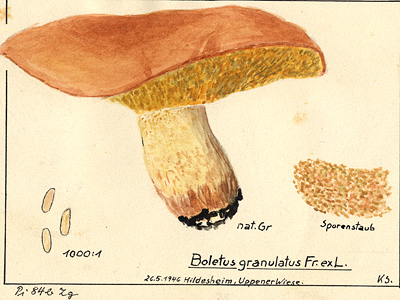 nat.Gr
Sporenstaub
1000:1
Boletus granulatus Fr. ex L.
26.5.1946 Hildesheim, Uppener Wiese.
KS.
Pi 84b Zg